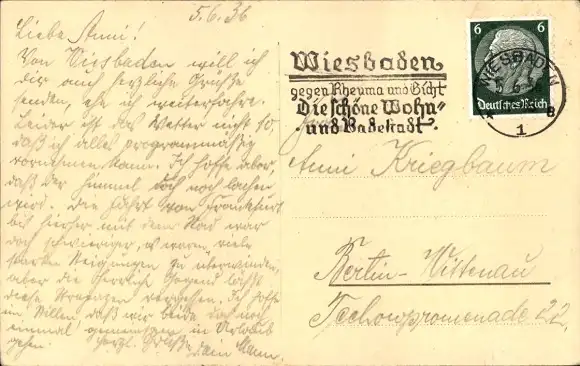 5.6.36
Liebe Anni!
Von Wiesbaden will ich
dir auch herzliche Grüße
senden, ehe ich weiterfahre.
Leider ist das Wetter nicht so,
daß ich alles programmäßig
vornehmen kann. Ich hoffe aber,
daß der Himmel doch noch lachen
wird. Die Fahrt von Frankfurt
bis hierher mit dem Rad war
doch schwieriger, es waren viele
starken Steigungen zu überwinden,
aber die herrlich Gegend läßt
diese Strapazen vergessen. Ich hoffe
im Stillen daß wir beide doch noch
einmal gemeinsam in Urlaub
gehen. Herzl. Grüße
Dein Mann.
Wiesbaden
gegen Rheuma und Gicht
Die schöne Wohn-
und Badestadt.
6 6
Deutsches Reich
WIESBADEN
1
B
Anni Kriegbaum
Berlin-Wittenau
Techowpromenade 22